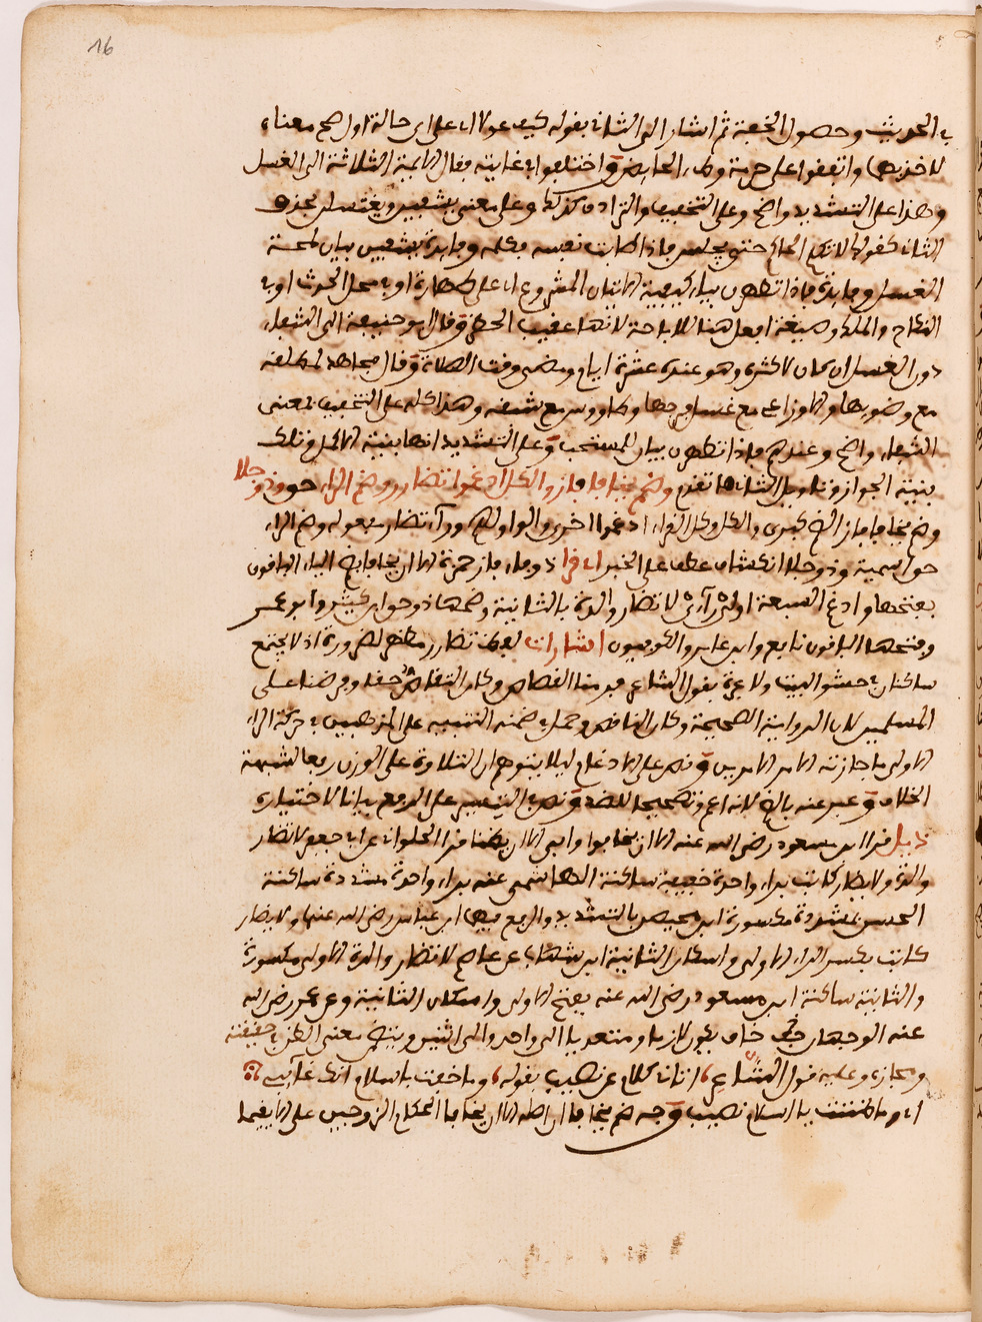 16
في الحديث وحصول الخفية ثم اشار الى الثاني بقوله كيف عولا اي على اي حالة اول صح معناه
لاخذيها واتفقوا على حرمة وطء الحايض واختلفوا في غايته فقال الايمة الثلاثة الى الغسل
وهذا على التشديد واضح وعلى التخفيف والترادف كذلك وعلى معنى يشفين ويغتسلن بحذف
الثاني كقولك لا تكلم الحاكم حتى يجلس فاذا طابت نفسه فكلمه وفايدة يشفين بيان لمحة
الغسل وفايدة فاذا تطهرن بيان كيفية الاتيان المشروع اي على طهارة او في محل الحرث او في
النكاح والملك وصيغة افعل هنا للاباحة لانها عقيب الحظر وقال ابو حنيفة الى الشفاء
دون الغسل ان كان لاكثره وهو عنده عشرة ايام ومضى وقت الصلاة وقال مجاهد لمطلقه
مع وضويها والاوزاعي مع غسل فرجها وطاووس مع شبقه وهذا كله على التخفيف بمعنى
الشفاء واضح وعندهم فاذا تطهرن بيان للمستحب وعلى التشديد انها بنية الاكمل وتلك
بنية الجواز وتاويل الثاني ما تقدم وضم يخافا فاز والكل ادغموا تضارر وضم الراء حق وذو جلا
وضم يخافا فاز اي كبرى والكل وكل القراء ادغموا اخرى والواو لهم وراء تضار مفعوله وضم الراء
حق اسمية وذو جلا انكشاف عطف على الخبر اي قرا ذو فاء فاز حمزة الا ان يخافا بضم الياء الباقون
بفتحها وادغم السبعة اولى راءي لا تضار والدة بالثانية وضمها ذو حق ابن كثير وابو عمرو
وفتحها الباقون نافع وابن عامر والكوفيون اشارات لفظ تضارر مظهر لضرورة اذ لا يجتمع
ساكنان في حشو البيت ولا عبرة بقول الشاعر فرمنا القصاص وكان التقاص حقا وفرضا على
المسلمين لان الرواية الصحيحة وكان القصاص وحمل في ضمنه التنبيه على المذهبين في حركة الراء
الاولى فاجازته الامر الامرين ونص على الادغام ليلا يتوهم ان التلاوة على الوزن رفعا لشبهة
الخلاف وعبر عنه بالضم لانه اعم وتصحيحا للضد ونص في التيسير على الرفع بيانا لاختياره
ذيل قرا ابن مسعود رضي الله عنه الا ان يخافوا وابي الا ان يظنا قرا الحلواني عن ابي جعفر لا تضار
والدة ولا يضار كاتب براء واحدة خفيفة ساكنة الهاشمي عنه براء واحدة مشددة ساكنة
الحسن مشددة مكسورة ابن محيصن بالتشديد والرفع فيهما ابن عباس رضي الله عنهما ولا يضارر
كاتب بكسر الراء الاولى واسكان الثانية ابن شهاب عن عاصم لا تضارر والدة الاولى مكسورة
والثانية ساكنة ابن مسعود رضي الله عنه بفتح الاولى واسكان الثانية وعن عمر رضي الله
عنه الوجهان خاف يكون لازما ومتعديا الى واحد والى اثنين ويتضمن معنى الظن حقيقة
ومجازه وعليه قول الشاعر اتاني كلام عن نصيب بقوله وما خفت يا سلام انك عايبي
اي وما ظننت يا سلام نصيب وجه ضم يخافا ان اصله الا ان يخافا الحكام الزوجين على الا يقيما